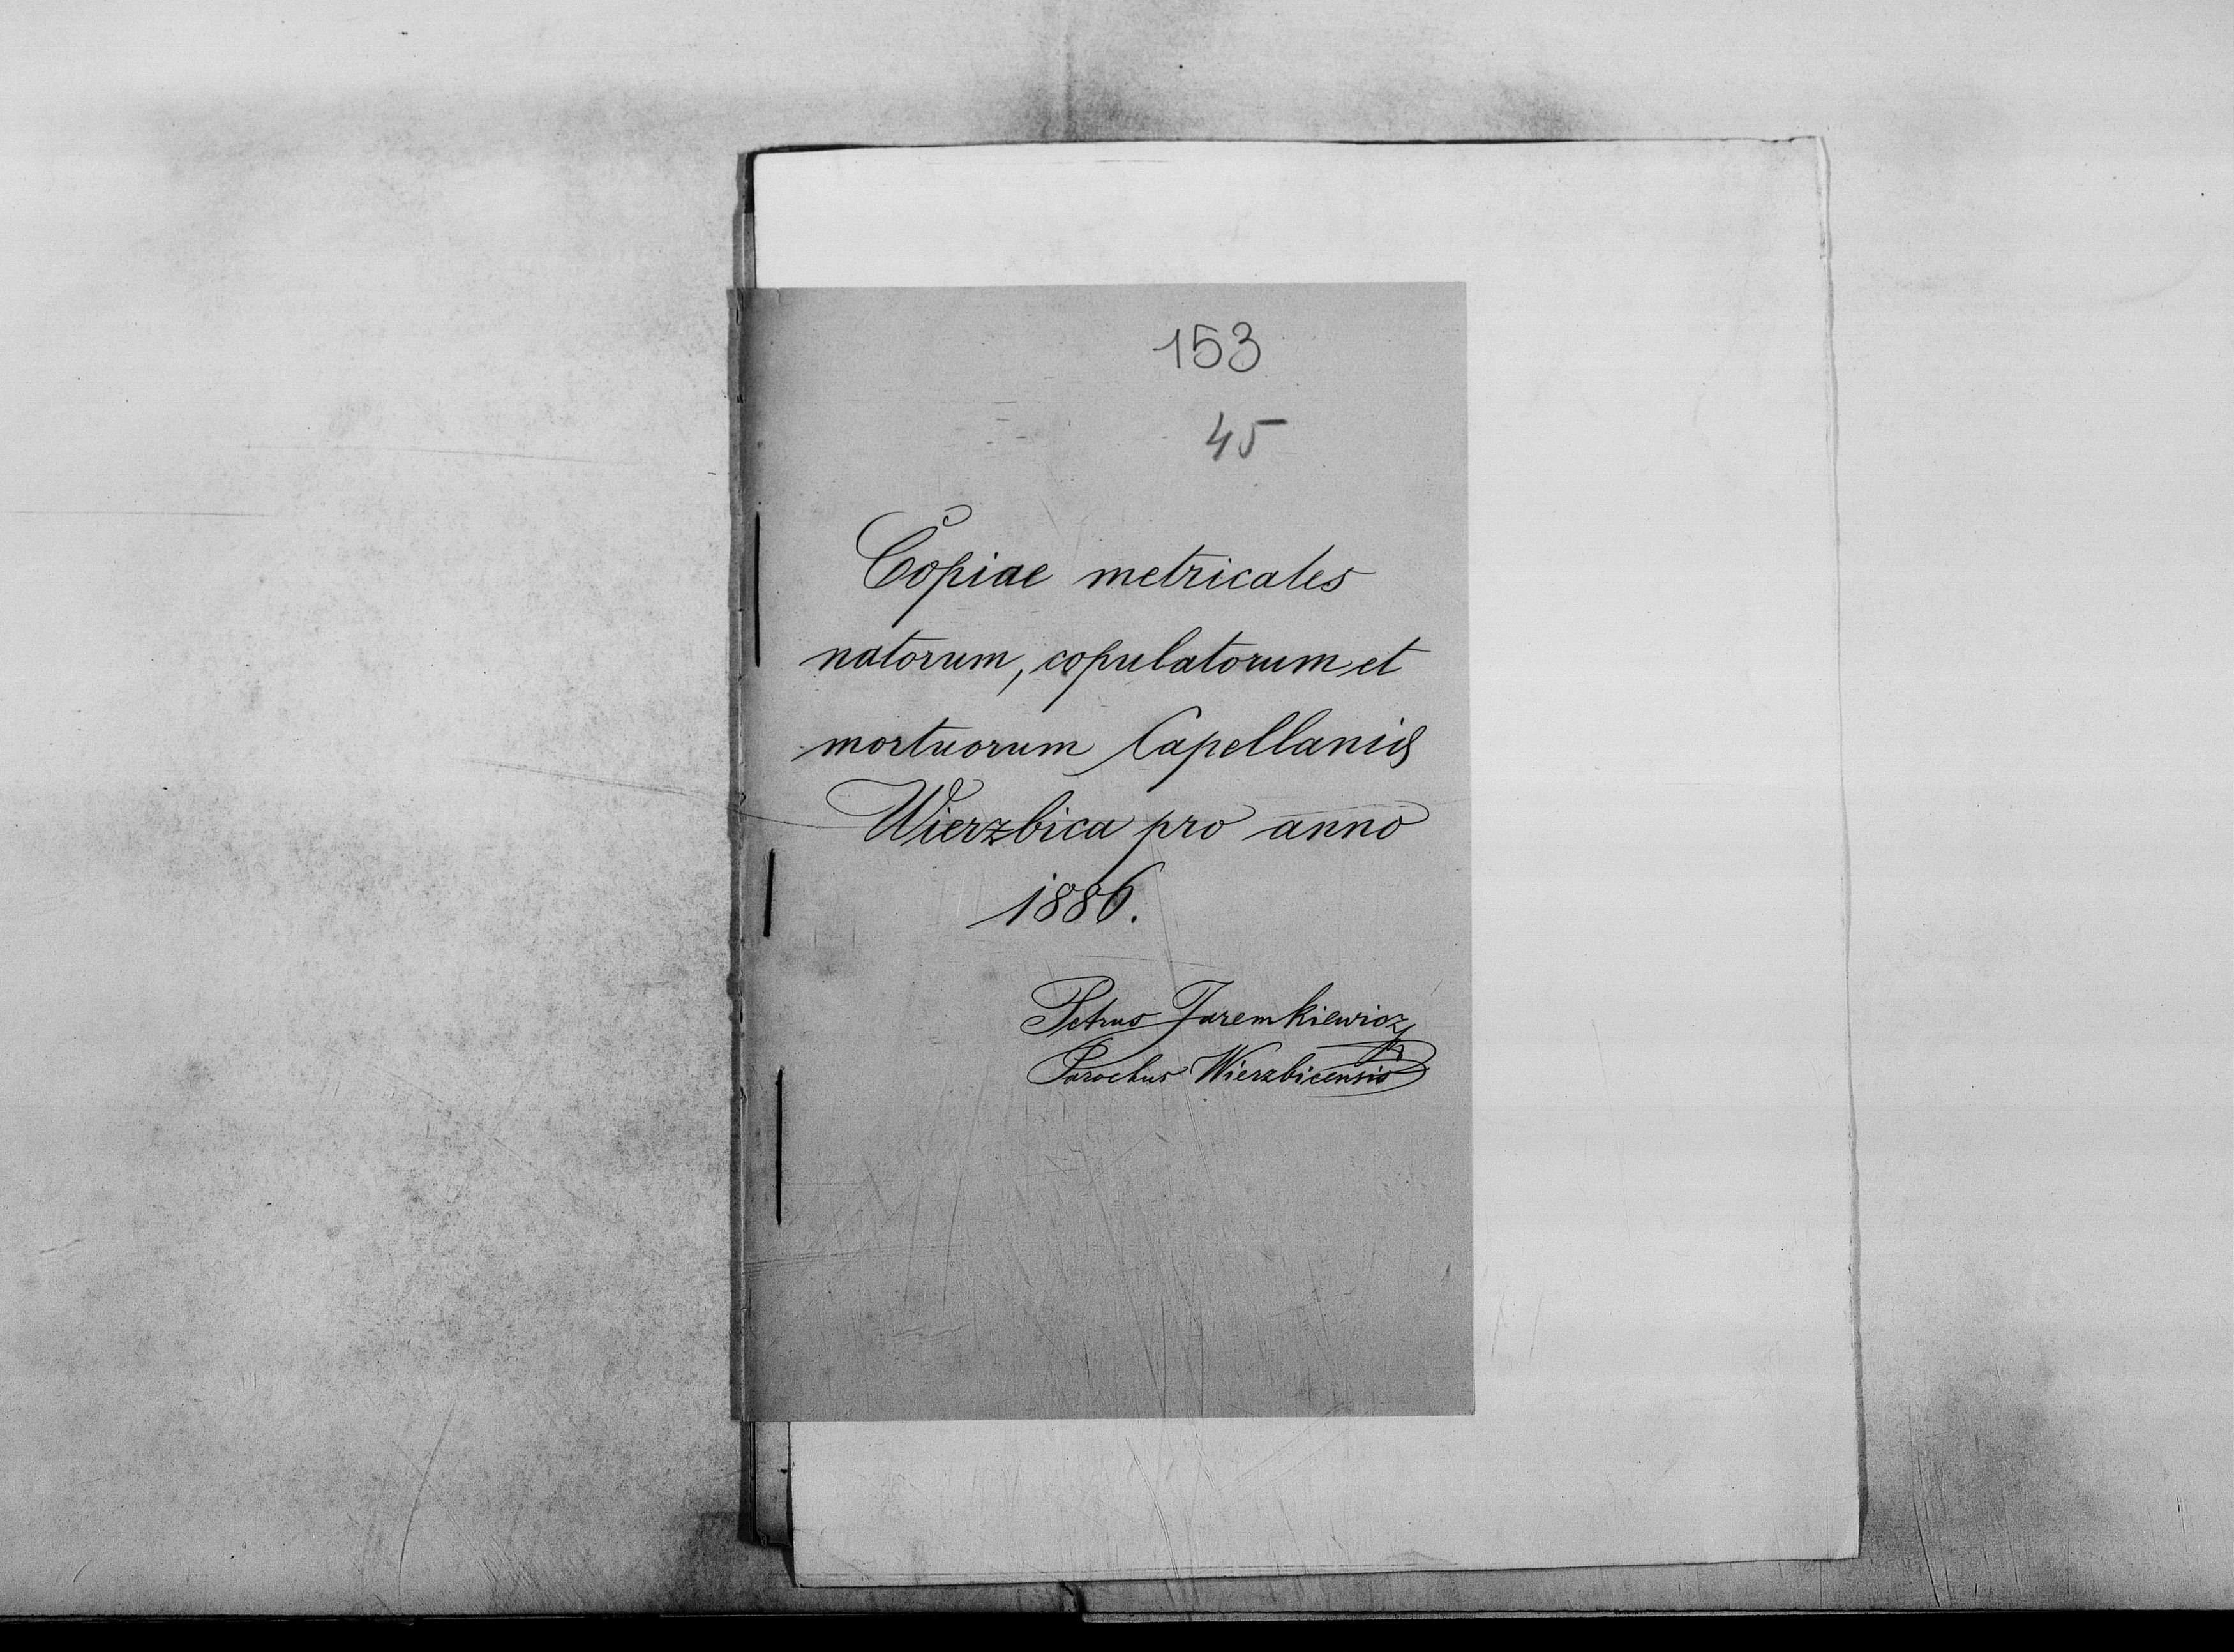 153
45
Copiae metricales
natorum, copulatorum et
mortuorum Capellaniæ
Wierzbica pro anno
1886.
Petrus Jaremkiewicz
Parochus Wierzbicensis